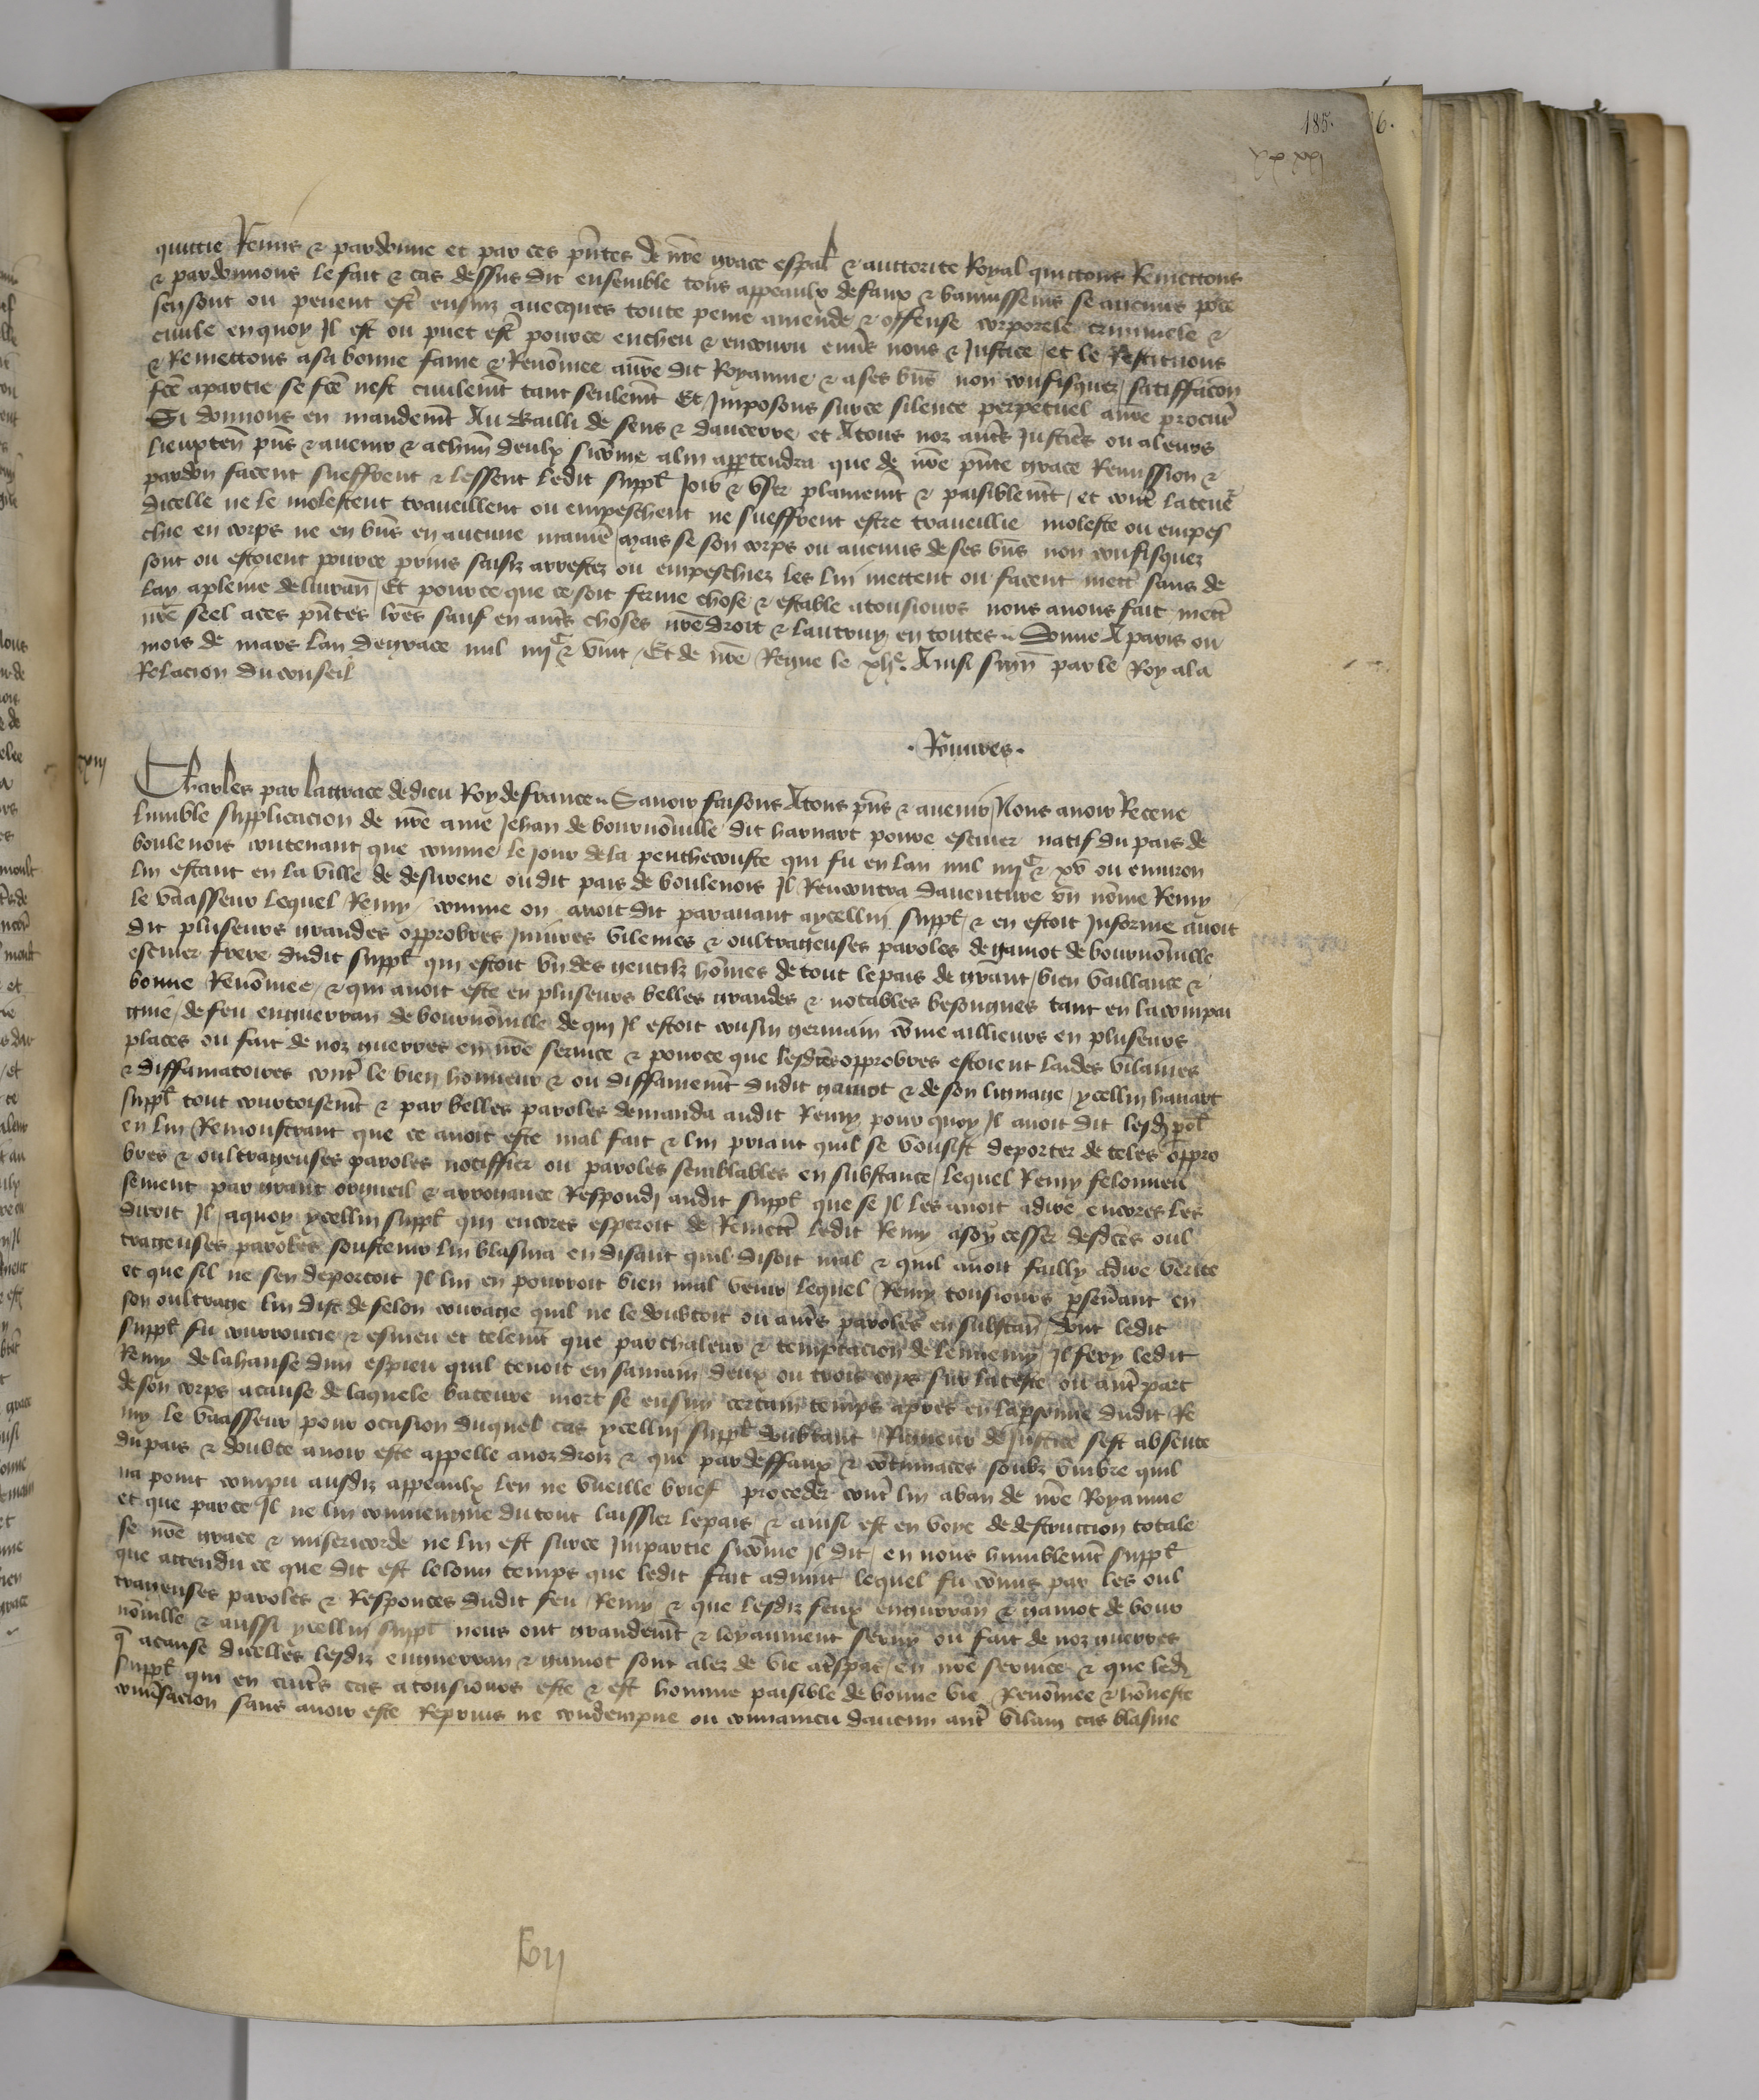 185. 6.
quittie Remis & pardonne et par ces pn̄tes de nr̄e grace esp̄al & auttorite Royal quittons Remettons
& pardonnons le fait & cas dessus dit ensemble tous appeaulx defaux & bannissemēs se aucuns pour ce
sensont ou pevent estr̄ ensuiz avecques toute peine amende & offense corporele criminele &
civile en quoy Il est ou puet estr̄ pour ce encheu & encouru env̄s nous & Justice / et le Restituons
& Remettons a sa bonne fame & Renōmee a nr̄e dit Royaume & a ses bn̄s non confisquez / satiffacōn
fc̄e a partie se fc̄e nest civilemt̄ tant seulemt̄ Et Imposons sur ce silence perpetuel a nr̄e procur̄
Si donnons en mandemt̄ Au Bailli de sens & daucerre et A tous noz autr̄s Justic̄s ou a leurs
lieuxten̄ pn̄s & avenir & a chūn deulx sicōme a lui app̄tendra que de nr̄e pn̄te grace Remission &
pardon facent sueffrent & lessent ledit supp̄l Joir & user plainemt̄ & paisiblemt̄ / et contr̄ la teneˀ
dicelle ne le molestent traveillent ou empeschent ne sueffrent estre traveillie moleste ou empes
chie en corps ne en bn̄s en aucune manier̄ / mais se son corps ou aucuns de ses bn̄s non confisquez
sont ou estoient pour ce prins saisiz arrestez ou empeschiez les lui mettent ou facent mettr̄ sans de
lay a pleine delivran̄ / Et pour ce que ce soit ferme chose & estable a tousiours nous avons fait mettr̄
nr̄e seel a ces pn̄tes lr̄es sauf en autr̄s choses nr̄e droit & lautruy en toutes Donne A paris ou
mois de mars lan de grace mil iiijc & vint / Et de nr̄e Regne le xlje. Ainsi sign̄ par le Roy a la
Relacion du conseil
. Rōmres .
xiij
Charles par la grace de dieu Roy de france Savoir faisons A tous pn̄s & avenir / Nous avoir Receue
lumble supplicacion de nr̄e ame Jehan de bournōville dit havart povre escuier natif du pais de
boulenois contenant / que comme le Jour de la penthecouste qui fu en lan mil iiijc & xv ou environ
lui estant en la ville de desurene ou dit pais de boulenois Il Rencontra daventure un nōme Remy
le vaasseur lequel Remy / comme on avoit dit paravant a ycellui supp̄l / & en estoit Informe avoit
dit pluseurs grandes opprobres Iniures vilenies & oultrageuses paroles de gamot de bournōville
escuier frere dudit supp̄l qui estoit un des gentilz hōmes de tout le pais de grant / bien vaillance &
bonne Renōmee / & qui avoit este en pluseurs belles grandes & notables besongnes tant en la compai
gnie / de feu enguerran de bournōville de qui Il estoit cousin germain cōme aillieurs en pluseurs
places ou fait de noz guerres en nr̄e service & pour ce que lesdictes opprobres estoient laides vilaines
& diffamatoires contr̄ le bien honneur & ou diffamemt̄ dudit gamot & de son linaige / ycellui havart
supp̄l tout courtoisemt̄ & par belles paroles demanda audit Remy pour quoy Il avoit dit lesd̄ p̄ol
en lui Remonstrant que ce avoit este mal fait & lui priant quil se vousist deporter de teles oppro
bres & oultrageuses paroles notiffier ou paroles semblables en substance / lequel Remy felonneu
sement par grant orgueil & arrogance Respondi audit supp̄l que se Il les avoit a dire encores les
diroit Il / a quoy ycellui supp̄l qui encores esperoit de Remettr̄ ledit Remy a soy cesser desdc̄es oul
trageuses paroles soustenir lui blasma en disant quil disoit mal & quil avoit failly a dire verite
et que sil ne sen deportoit Il lui en pourroit bien mal venir / lequel Remy tousiours p̄sev̄ant en
son oultrage lui dist de felon courage quil ne le doubtoit ou autr̄s paroles en substan̄ / dont ledit
supp̄l fu courroucie & esmeu et telemt̄ que par chaleur & temptacion de lennemy / Il fery ledit
Remy de la hanse dun espieu quil tenoit en sa main deux ou trois cops sur la teste ou autr̄ part
de son corps / a cause de laquele bateure mort se ensuy certain temps apres en la p̄sonne dudit Re
my le vaasseur / pour ocasion duquel cas ycellui supp̄l doubtant Rigueur de Justice sest absente
du pais & doubte avoir este appelle a noz droiz & que par deffaux & cōtumaces soubz umbre quil
na point compu ausdiz appeaulx len ne vueille brief proceder contr̄ lui a ban de nr̄e Royaume
et que par ce Il ne lui conviengne du tout laissier le pais & ainsi est en voye de destruccion totale
se nr̄e grace & misericorde ne lui est sur ce Impartie sicōme Il dit / en nous humblemt̄ supp̄l
que attendu ce que dit est le long temps que ledit fait advint lequel fu cōmis par les oul
trageuses paroles & Responces dudit feu Remy & que lesdiz feux enguerran & gamot de bour
nōville & aussi ycellui supp̄l nous ont grandemt̄ & loyaument servy ou fait de noz guerres
q̄ a cause dicelles lesdiz enguerran & gamot sont alez de vie a tr̄spas / en nr̄e service & que led̄
supp̄l qui en autr̄s cas a tousiours este & est homme paisible de bonne vie Renōmee & hōneste
conv̄sacion sans avoir este Reprins ne condempne ou convaincu daucun autr̄ vilain cas blasme